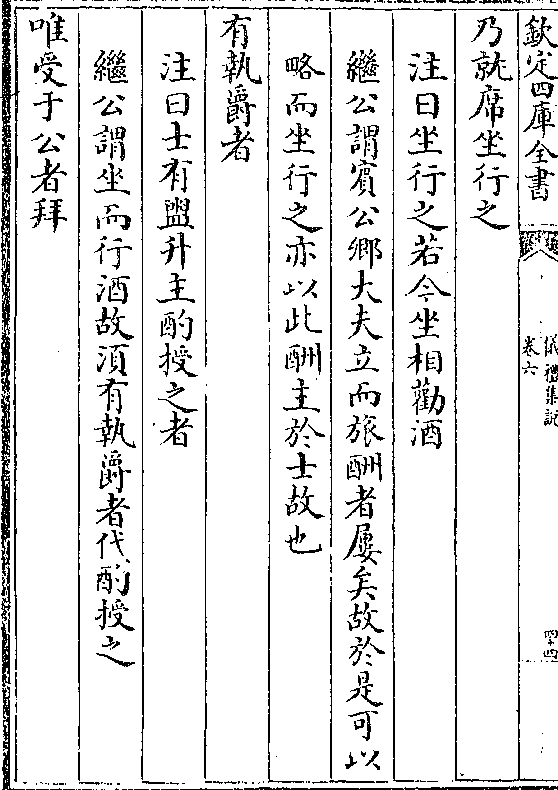 欽定四庫全書
儀禮集説
卷六
四十四
乃就席坐行之
注曰坐行之若今坐相勸酒
繼公謂賓公卿大夫立而旅酬者屢矣故於是可以
略而坐行之亦以此酬主於士故也
有執爵者
注曰士有盥升主酌授之者
繼公謂坐而行酒故須有執爵者代酌授之
唯受于公者拜